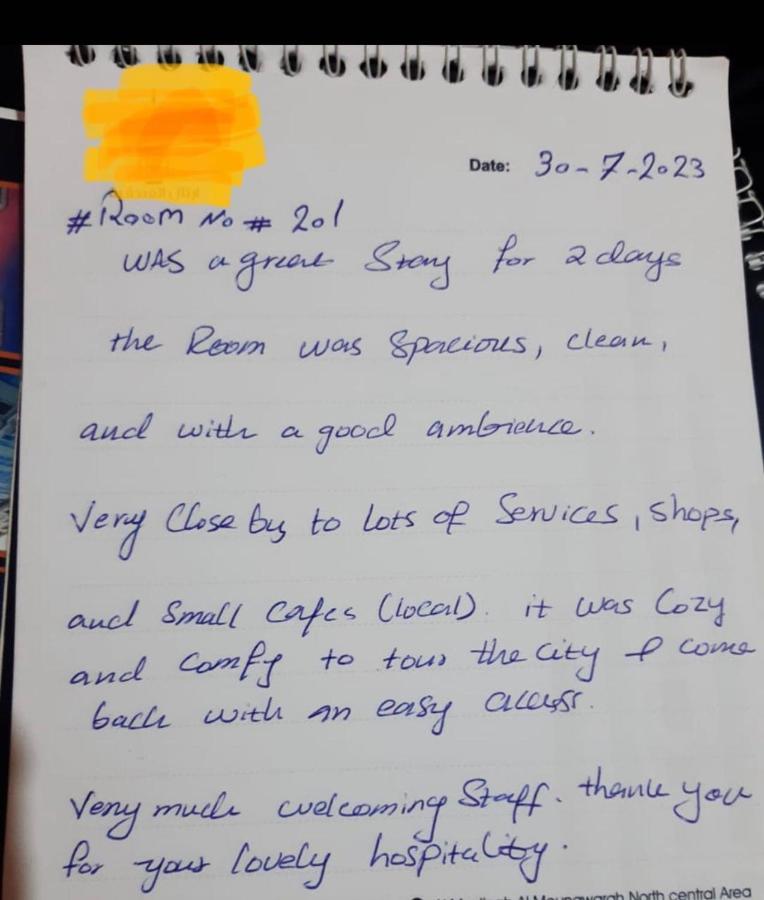 Date: 30-7-2023
#Room No # 201
WAS a great Stay for 2 days
the Room was Spacious, clean,
and with a good ambience.
Very Close by to lots of Services, shops,
and Small Cafes (local). it was Cozy
and Comfy to tour the city & come
back with an easy access.
Very much welcoming Staff. thank you
for your lovely hospitality.
North central Area